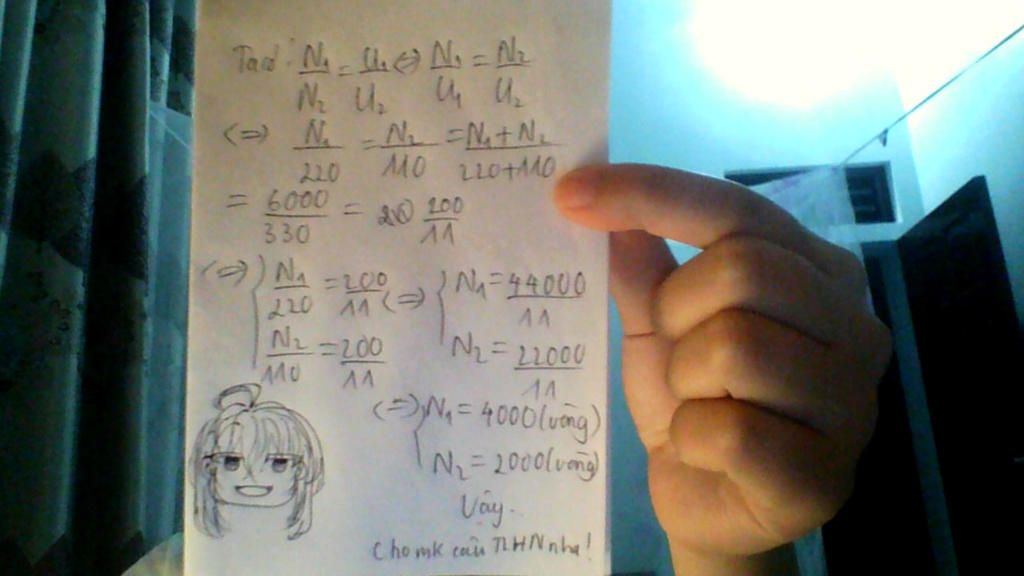 Ta có: N₁/N₂ = U₁/U₂ <=> N₁/U₁ = N₂/U₂
<=> N₁/220 = N₂/110 = N₁+N₂/220+110
= 6000/330 = 200/11
<=> { N₁/220 = 200/11 <=> { N₁ = 44000/11
N₂/110 = 200/11 N₂ = 22000/11
<=> { N₁ = 4000 (vòng)
N₂ = 2000 (vòng)
Vậy..
Cho mk câu TLHN nha!